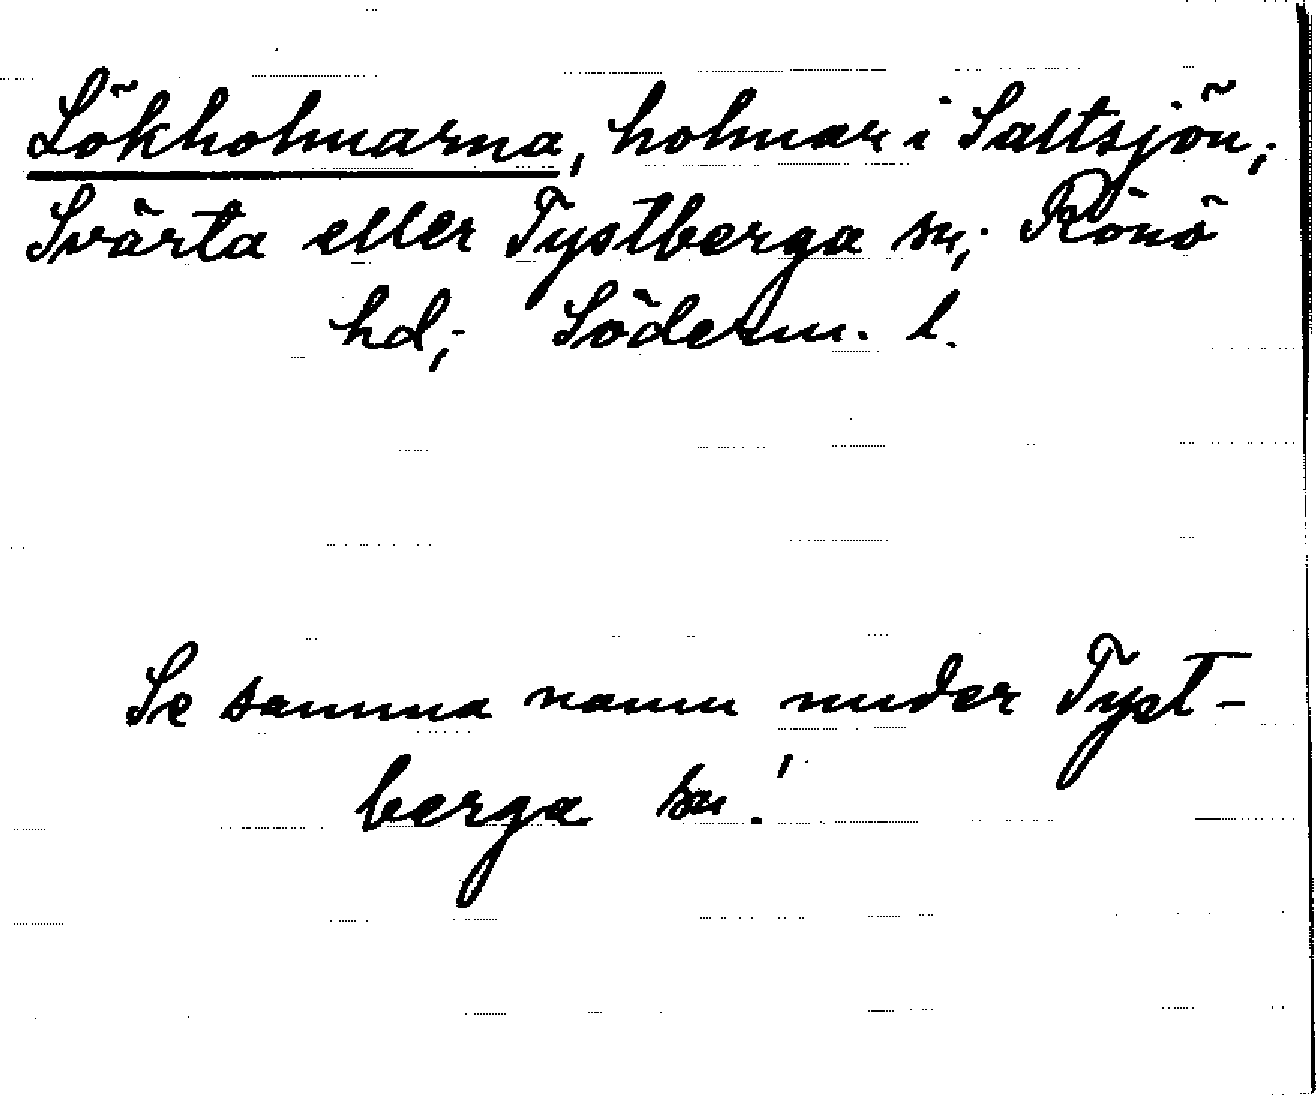 Lökholmarna, holmar i Saltsjön;
Svärta eller Tystberga sn; Rönö
hd; Söderm. l.
Se samma namn under Tyst-
berga sn!